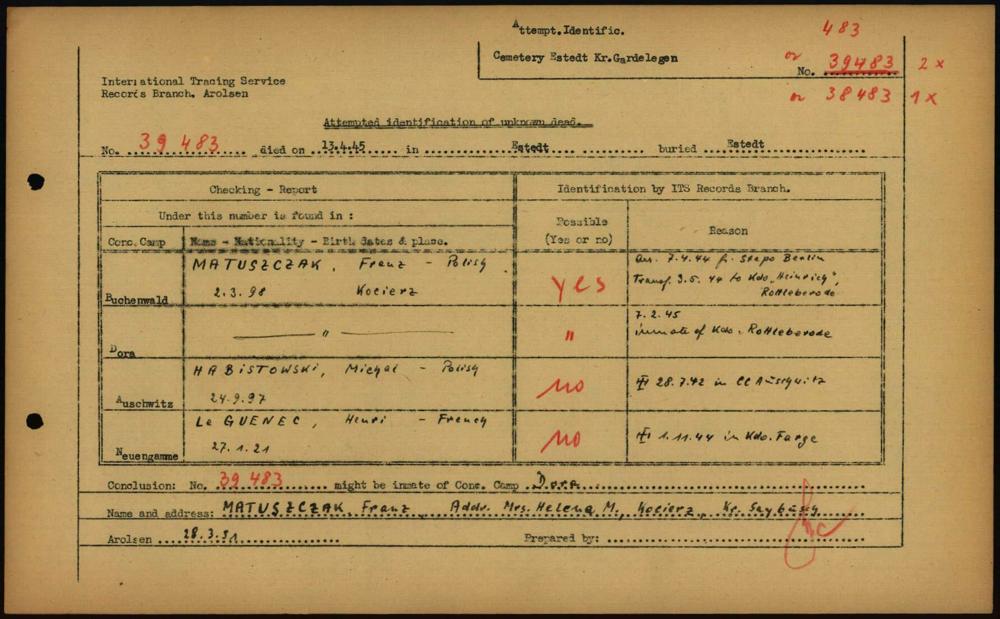 Attempt. Identific.
483
Cemetery Estedt Kr. Gardelegen
or No. 39483 2 x
or 38483 1 x
International Tracing Service
Records Branch. Arolsen
Attempted identification of unknown dead.
No. 39 483 died on 13.4.45 in Estedt buried Estedt
Checking - Report
Identification by ITS Records Branch.
Under this number is found in :
Possible
(Yes or no)
Reason
Conc. Camp
Name - Nationality - Birth dates & place.
Buchenwald
MATUSZCZAK, Franz - Polish
2.3.98 Kocierz
yes
arr. 7.4.44 fr. Stapo Berlin
Transf. 3.5.44 to Kdo. "Heinrich",
Rottleberode
Dora
"
"
7.2.45
inmate of Kdo. Rottleberode
Auschwitz
HABISTOWSKI, Michal - Polish
24.9.97
no
28.7.42 in CC Auschwitz
Neuengamme
Le GUENEC, Henri - French
27.1.21
no
1.11.44 in Kdo. Farge
Conclusion: No. 39 483 might be inmate of Conc. Camp Dora
Name and address: MATUSZCZAK Franz Addr. Mrs. Helena M., Kocierz, Kr. Saybusch
Arolsen 28.3.51 Prepared by: